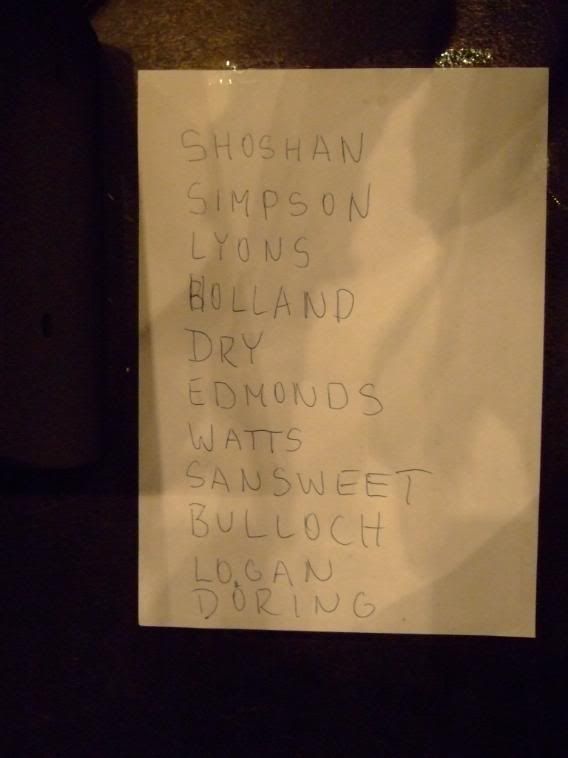 SHOSHAN
SIMPSON
LYONS
HOLLAND
DRY
EDMONDS
WATTS
SANSWEET
BULLOCH
LOGAN
DÖRING